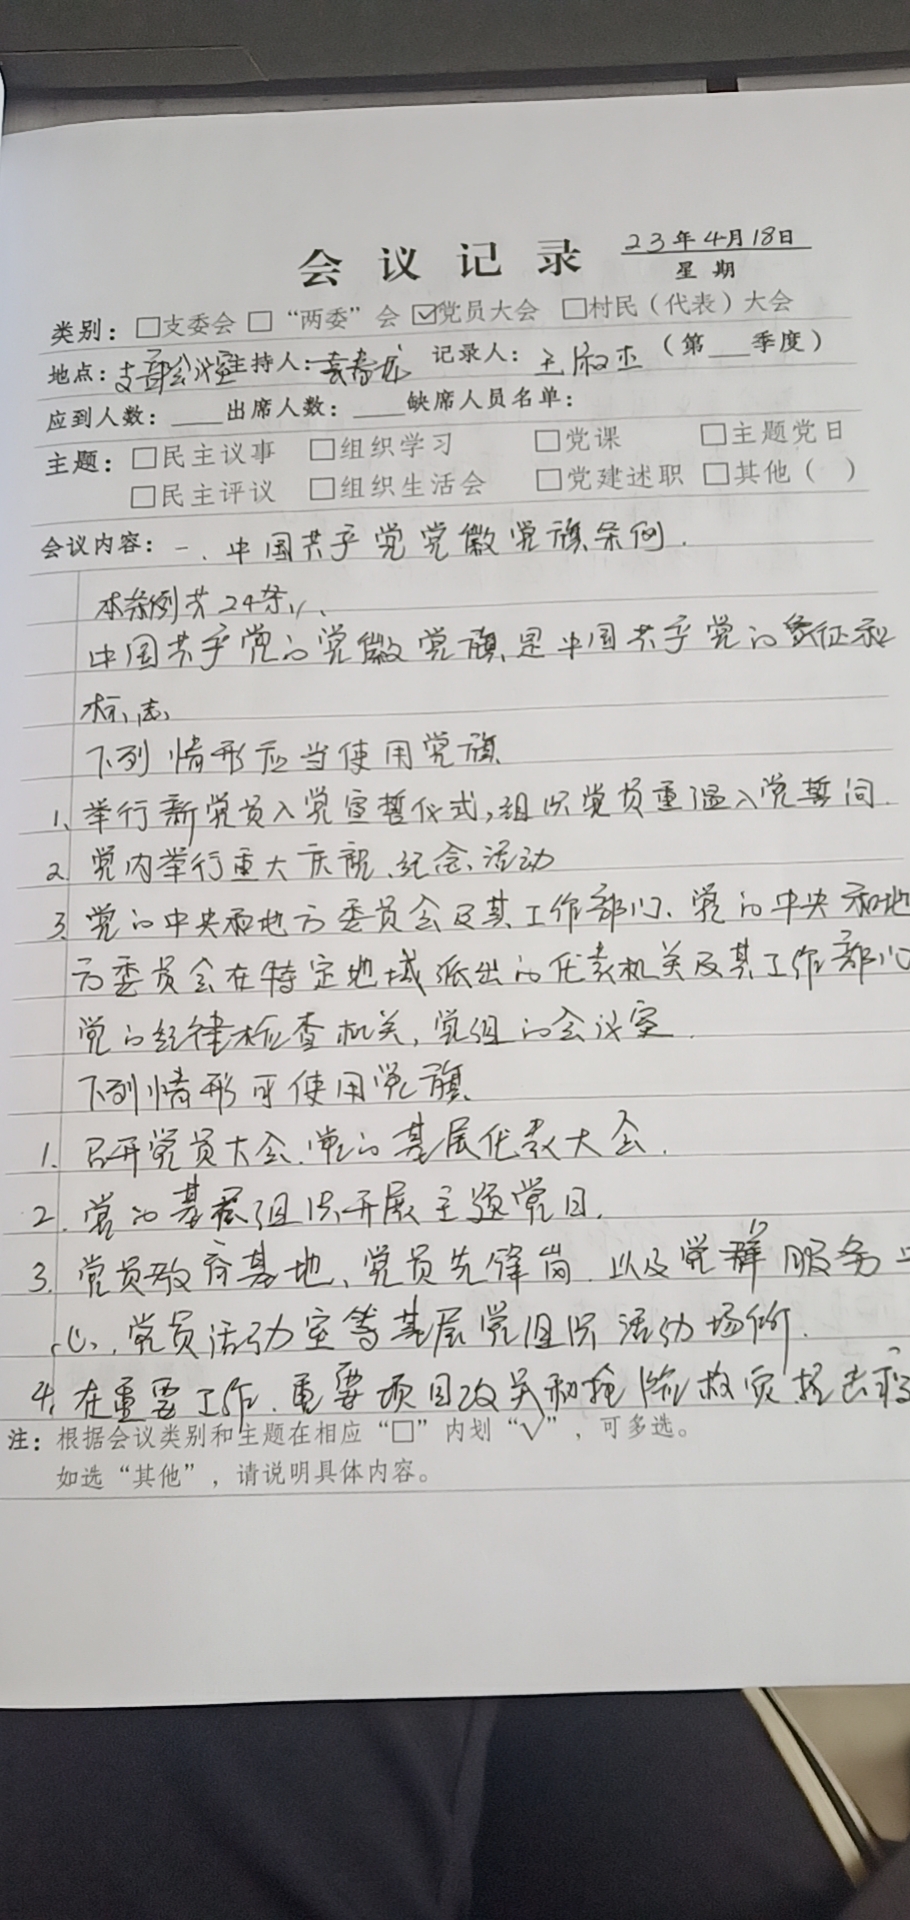 会议记录 23年4月18日
星期
类别：□支委会 □“两委”会 ☑党员大会 □村民（代表）大会
地点：支部会议室 主持人： 记录人：王淑杰（第___季度）
应到人数：____出席人数：____缺席人员名单：
主题：□民主议事 □组织学习 □党课 □主题党日
□民主评议 □组织生活会 □党建述职 □其他（ ）
会议内容：一、中国共产党党徽党旗条例.
本条例共24条,
中国共产党的党徽党旗是中国共产党的象征和
标志、
下列情形应当使用党旗
1、举行新党员入党宣誓仪式,组织党员重温入党誓词.
2、党内举行重大庆祝、纪念活动
3、党的中央和地方委员会及其工作部门、党的中央和地
方委员会在特定地域派出的代表机关及其工作部门
党的纪律检查机关,党组的会议室.
下列情形可使用党旗
1、召开党员大会、党的基层代表大会.
2、党的基层组织开展主题党日.
3、党员教育基地、党员先锋岗、以及党群服务中
心、党员活动室等基层党组织活动场所.
4、在重要工作、重要项目攻关和抢险救灾
注：根据会议类别和主题在相应“□”内划“√”，可多选。
如选“其他”，请说明具体内容。